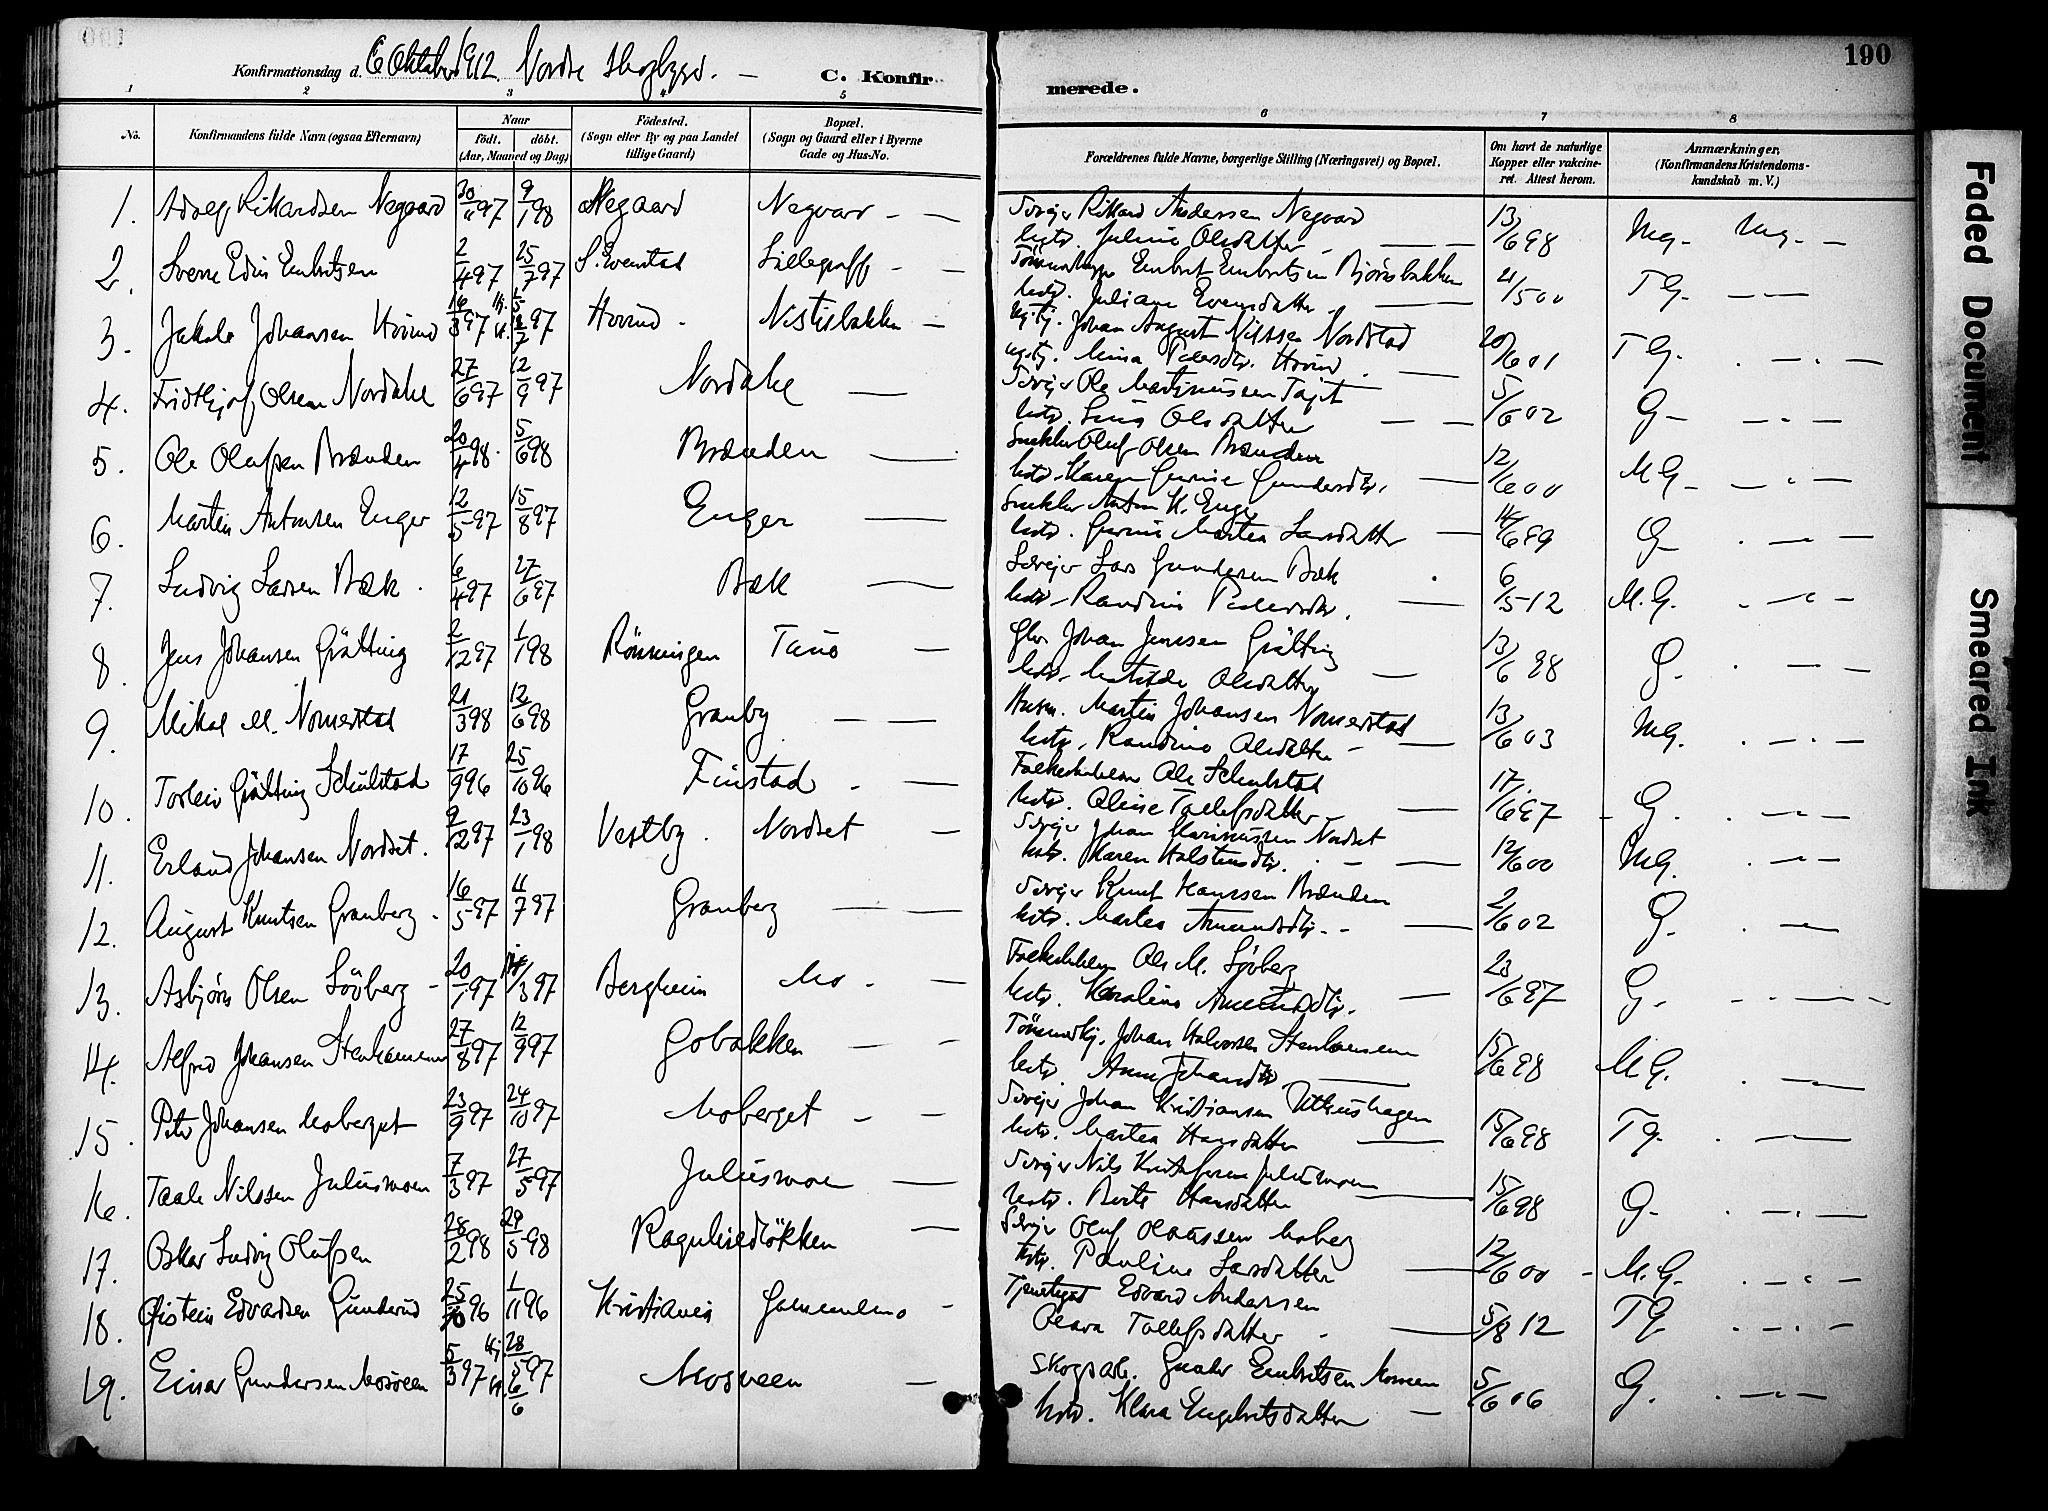 190
Konfirmationsdag d. 6 Oktober 1912. Nordre Skogbygd. — C. Konfirmerede.
1 2 3 4 5 6 7 8
No. Konfirmandens fulde Navn (ogsaa Efternavn) Naar født. døbt. (Aar, Maaned og Dag) Fødested. (Sogn eller By og paa Landet tillige Gaard) Bopæl. (Sogn og Gaard eller i Byerne Gade og Hus-No. Forældrenes fulde Navne, borgerlige Stilling (Næringsvei) og Bopæl. Om havt de naturlige Kopper eller vakcineret. Attest herom. Anmærkninger. (Konfirmandens Kristendomskundskab m. V.)
1. Adolf Rikardsen Negaard 30/11 97 9/1 98 Negaard Negaard — — Selvejer Rikard Andersen Negaard
Hstr. Juline Olsdatter 13/6 98 Mg. Mg. —
2. Sverre Edin Embretsen 2/4 97 25/7 97 S. Evenstad Lillegraff — — Embret Embretsen Bjørnsbakken
Hstr. Juliane Evensdatter 21/5 00 TG. — —
3. Jakob Johansen Hovind 16/3 97 Hovind Nistubakken — Johan August Nilssen Nordstad
Mina Pedersdtr. Hovind 20/6 01 TG.
4. Fridthjof Olsen Nordahl 27/6 97 12/9 97 Nordahl — Selvejer Ole Martinussen
Hstr. Olsdatter 5/6 02 G —
5. Ole Olufsen Brænden 20/4 98. 5/6 98 Brænden — Snekker Oluf Olsen Brænden
Hstr. Karen Gurine Gundersdtr. 12/6 00 MG —
6. Martin Antonsen Enger 12/5 97 15/8 97 Enger — Snekker Anton K. Enger
Hstr. Gurine Martea Larsdatter 14/6 99 G
7. Ludvig Larsen Bæk. 6/4 97 27/6 97 Bæk — Selvejer Lars Gundersen Bæk
Hstr. Randine Pedersdtr. 6/5 12 M.G.
8. Jens Johansen Grätting 2/12 97 1/1 98 Rönningen — Johan Jenssen Grätting
Hstr. Matilde Olsdatter 13/6 98 G.
9. Mikal M. Nomerstad 21/3 98 12/6 98 Granby — — Husm. Martin Johansen Nomerstad
Hstr. Randine Olsdatter 13/6 03 MG.
10. Torleiv Grätting Schulstad 17/9 96 25/10 96 Finstad — Ole Schulstad
Hstr. Oline Tollefsdatter 17/6 97 G.
11. Erland Johansen Nordset. 9/12 97 23/1 98 Vestby. Nordset — Selvejer Johan Nordset
Hstr. Karen Halstensdtr. 12/6 00 MG.
12. August Knutsen Granberg 16/5 97 11/7 97 Granberg — — Selvejer Knut Hanssen Brænden
Hstr. Martea Amundsdtr. 2/6 02 G.
13. Asbjörn Olsen Lövberg 20/1 97 /3 97 Bergheim Mo — Ole M. Lövberg
Hstr. Karoline Amundsdtr. 23/6 97 G.
14. Alfred Johansen Stenhammeren 27/8 97 12/9 97 Gobakken — Johan Halvorsen
Hstr. Anne Johansdtr. 15/6 98 MG.
15. Peter Johansen Moberget 23/9 97 24/10 97 Moberget — Selvejer Johan Kristiansen Utkushagen
Hstr. Martea Hansdatter 15/6 98 TG.
16. Nilssen Juliusmoen 7/3 97 27/5 97 Juliusmoen — Selvejer Nils Kristofersen Juliusmoen
Hstr. Berte Hansdatter 15/6 98 G.
17. Oskar Ludvig Olufsen 28/2 98 29/5 98 — Selvejer Oluf Olaussen Moberg
Hstr. Pauline Larsdatter 12/6 00 M.G.
18. Øistein Edvardsen Gunderud 25/10 96 1/11 96 Kristiania Gammelmo — Edvard Andersen
Olava Tollefsdatter 5/8 12 TG.
19. Einar Gundersen Mosveen 5/3 97 28/5 97 6/6 Mosveen — Skogsarb. Gunder Embretsen Mosveen
Hstr. Klara Engebretsdatter 5/6 06 G.
Faded Document
Smeared Ink